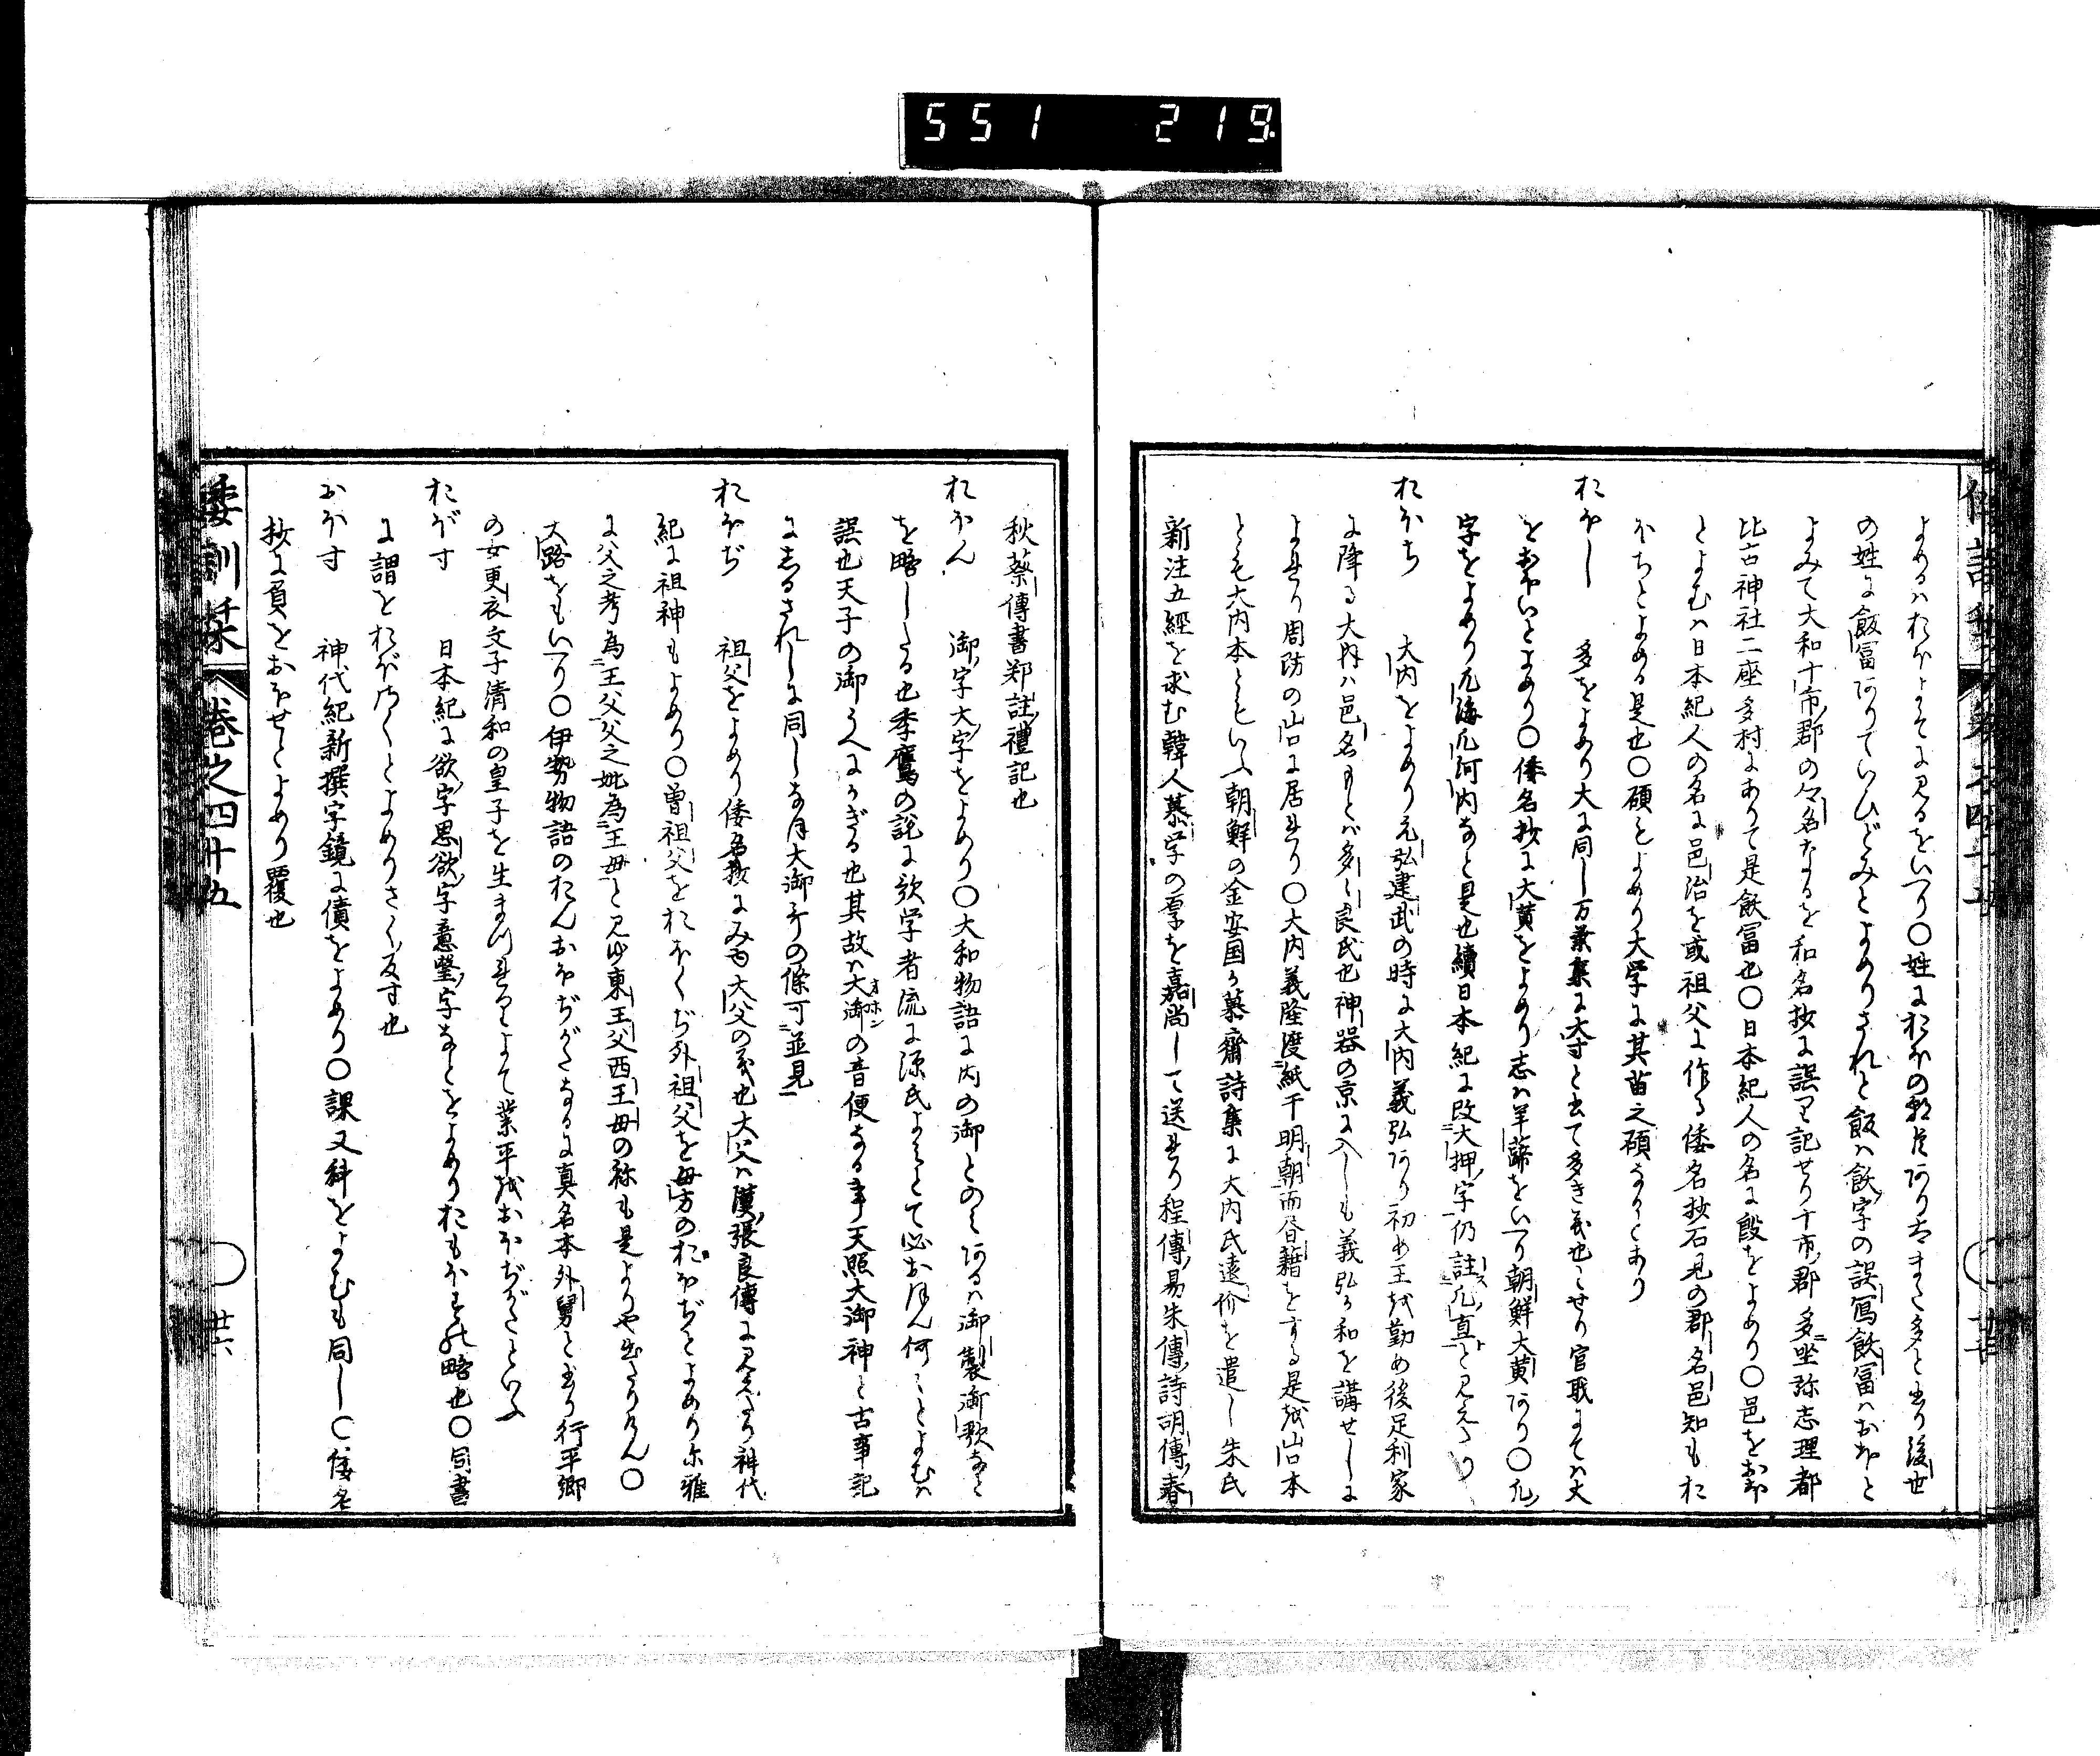 551 219
よめるハおほよそに見るをいへり〇姓におほの朝臣ありまた多と書り後世
の姓に飯冨ありていひどみとよめりされと飯ハ飫字の誤寫飫冨ハおほと
よみて大和十市郡の名なるを和名抄に誤て記せり十市郡多坐弥志理都
比古神社二座多村にありて是飫冨也〇日本紀人の名に殿をよめり〇邑をおほ
とよむハ日本紀人の名に邑治を或祖父に作る倭名抄石見の郡名邑知もお
ほちとよめる是也〇碩をよめり大学に其苗之碩なりとあり
おほし 多をよめり大に同し万葉集に大寸と書て多き義也とせり官職にてハ大
をおほいとよめり〇倭名抄に大黄をよめり志ハ羊蹄をいへり朝鮮大黄あり〇凡
字をよめり凡海凡河内なと是也續日本紀に改大押字仍註凡直と見えたり
おほち 大内をよめり元弘建武の時に大内義弘あり初め王を勤め後足利家
に降る大内ハ邑名もとハ多々良氏也神器の京に入しも義弘か和を講せしに
よれり周防の山口に居れり〇大内義隆渡紙于明朝而容藉をする是を山口本
とも大内本ともいふ朝鮮の金安国か慕齋詩集に大内氏遠价を遣し朱氏
新注五經を求む韓人慕学の厚を嘉尚して送れり程傳易朱傳詩胡傳春
秋蔡傳書郑註禮記也
おほん 御字大字をよめり〇大和物語に内の御とのみあるハ御製御歌なと
を略したる也季鷹の説に歌学者流に源氏よみとて必おほん何々とよむハ
誤也天子の御うへにかぎる也其故ハ大御オホンの音便なる事天照大御神と古事記
にしるされしに同しなほ大御行の條可並見
おほぢ 祖父をよめり倭名抄にみゆ大父の義也大父ハ漢張良傳に見えたり神代
紀に祖神もよめり〇曽祖父をおほおほぢ外祖父を母方のおほぢとよめり尓雅
に父之考為王父父之妣為王母と見ゆ東王父西王母の称も是よりや出たりけん〇
大路をもいへり〇伊勢物語のおんおほぢがたなるに真名本外舅と書り行平卿
の女更衣文子清和の皇子を生まつれるによて業平をおほぢがたといふ
おぼす 日本紀に欲字思欲字意慾字なとをよめりおもほすの略也〇同書
に謂をおぼさくとよめりさく反す也
おほす 神代紀新撰字鏡に債をよめり〇課又科をよむも同し〇倭名
抄に負をおほせとよめり覆也
倭訓栞 巻之四十五 廿六